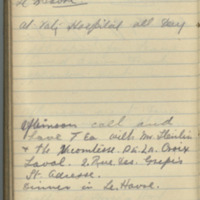 Le Havre
At Hospital all Day
Afternoon call and
have Tea with M
& the Vicomtesse De La Croix
Laval. 2 Rue des
St. Adresse.
Dinner in Le Havre.